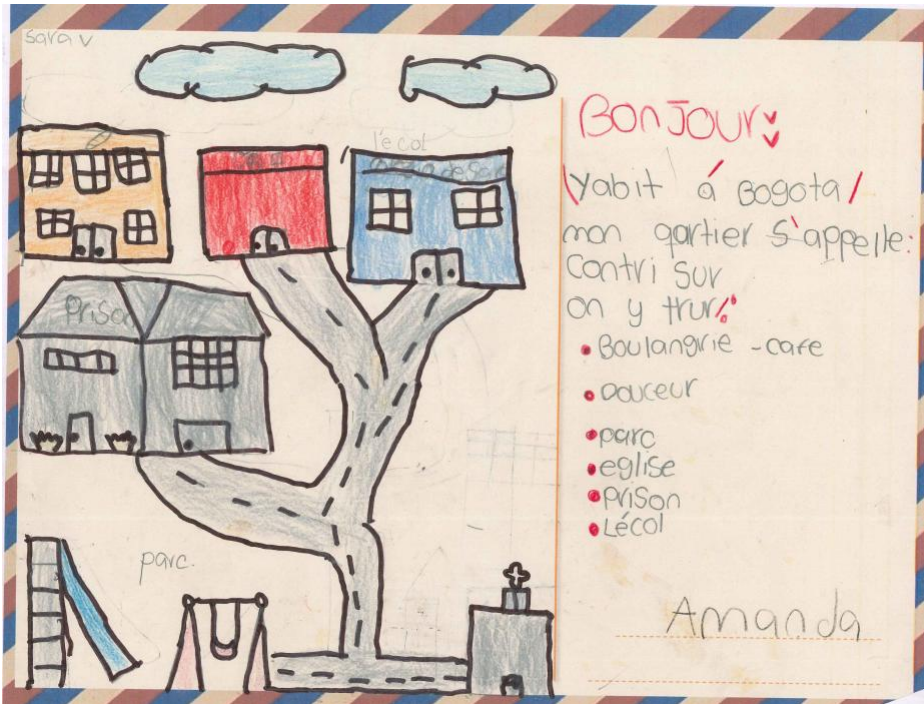 Sara V
l'ecol
Prison
parc.
BONJOUR
Yabit á Bogota
mon qartier s'appelle:
Contri sur
on y trur:
• Boulangrie - cafe
• Douceur
• parc
• eglise
• Prison
• Lécol
Amanda